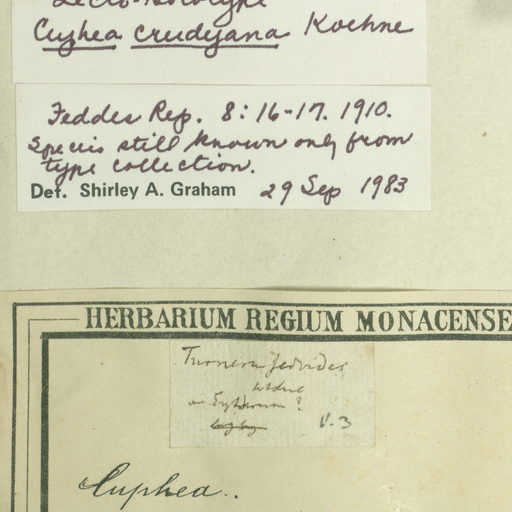 Cuphea crudyana Koehne
Feddes Rep. 8: 16-17. 1910.
Species still known only from
type collection.
Det. Shirley A. Graham 29 Sep 1983
HERBARIUM REGIUM MONACENSE
Turnera
an ?
V. 3
Cuphea..